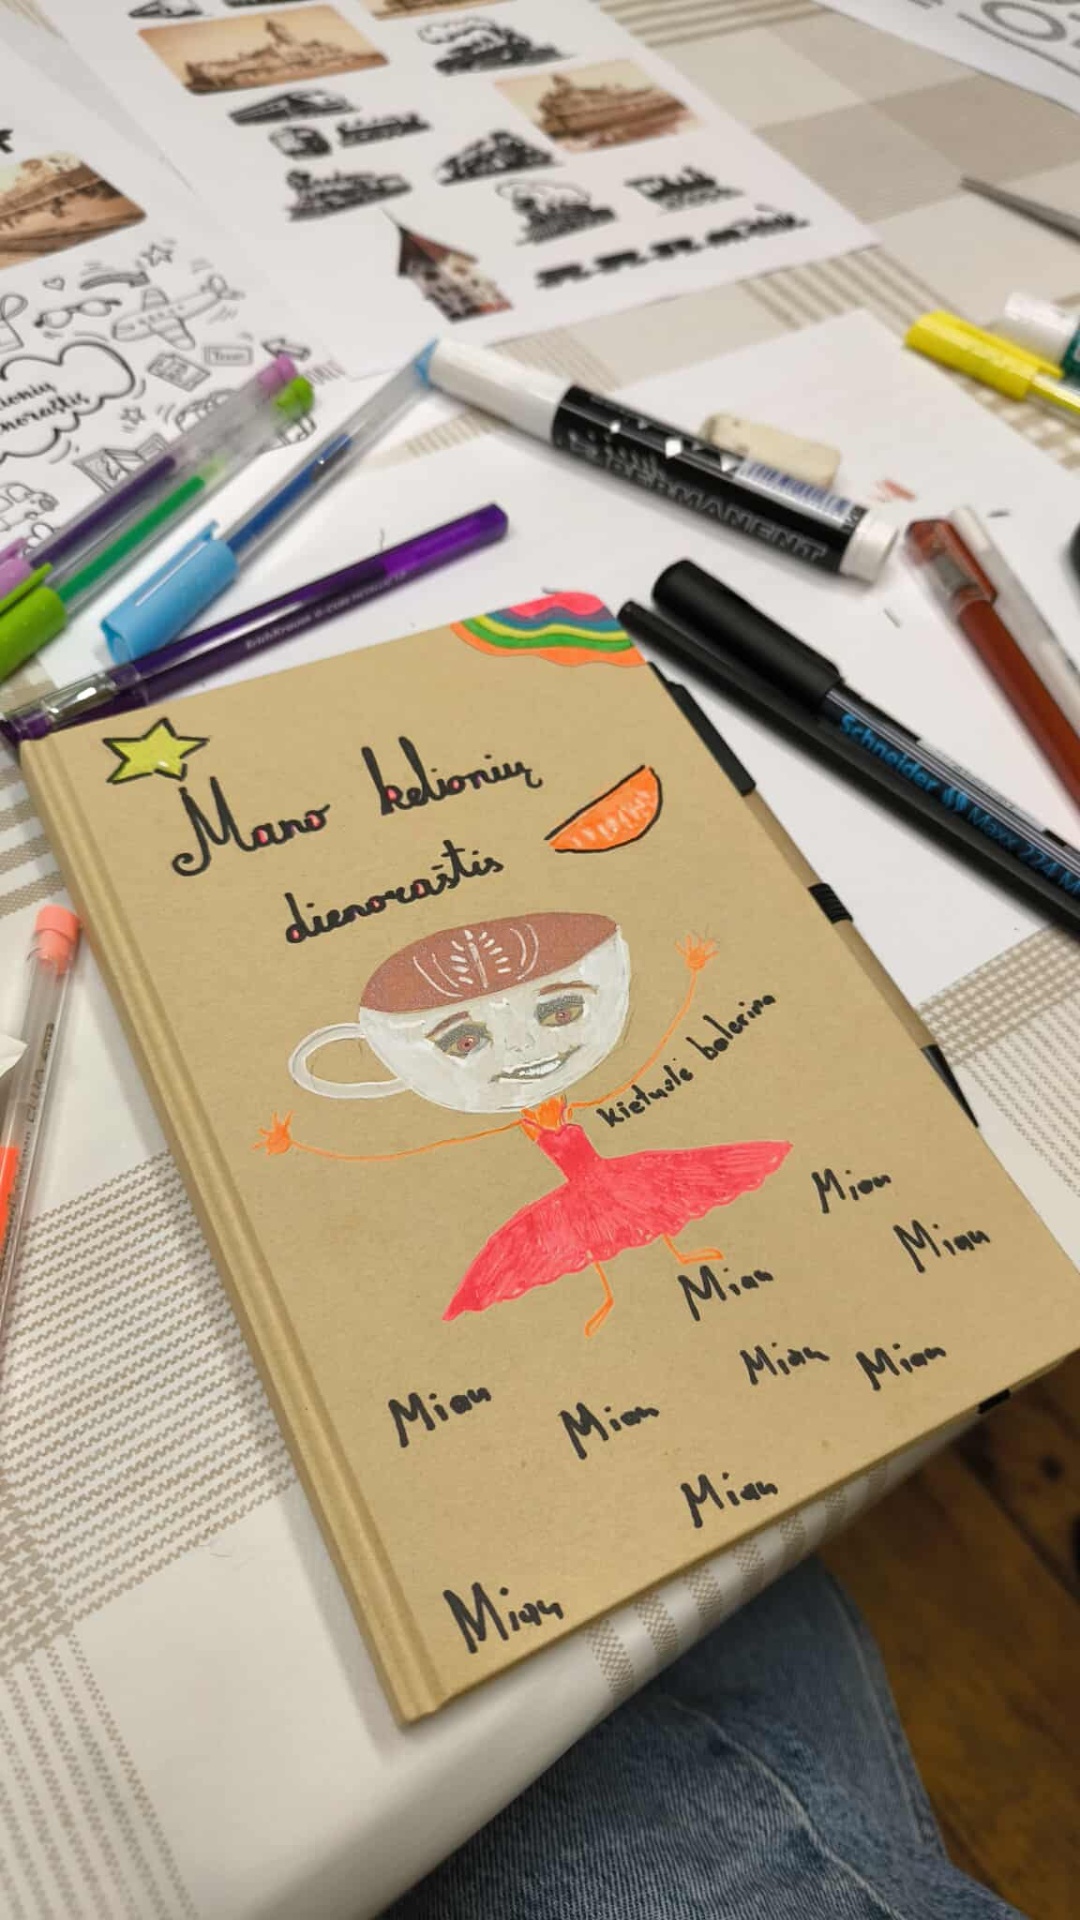 Mano kelionių
dienoraštis
kietuolė balerina
Miau
Miau
Miau
Miau
Miau
Miau
Miau
Miau
Miau
PERMANENT
Schneider Maxx 224 M